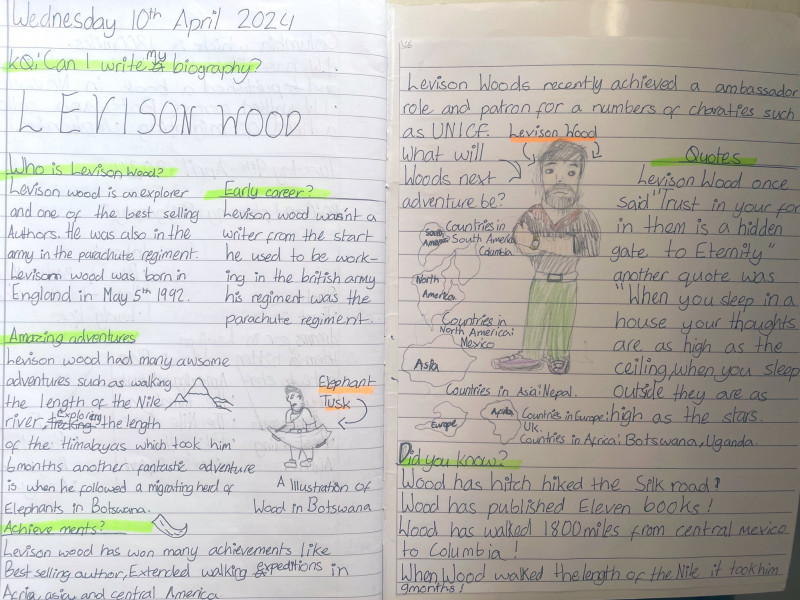 Wednesday 10th April 2024
KQ: Can I write my biography?
LEVISON WOOD
Who is Levison Wood?
Levison wood is an explorer
and one of the best selling
Authors. He was also in the
army in the parachute regiment.
Levison wood was born in
England in May 5th 1992.
Early career?
Levison wood wasn't a
writer from the start
he used to be work-
ing in the british army
his regiment was the
parachute regiment.
Amazing adventures
Levison wood had many awsome
adventures such as walking
the length of the Nile
river, exploring the length
of the Himalayas which took him
6months another fantastic adventure
is when he followed a migrating herd of
Elephants in Botswana.
Elephant
Tusk
A Illustration of
Wood in Botswana
Achievements?
Levison wood has won many achievements like
Best selling author, Extended walking expeditions in
Africa, asia and central America
Levison Woods recently achieved a ambassador
role and patron for a numbers of charaties such
as UNICF.
Levison Wood
What will
Woods next
adventure be?
South America
Countries in
South America
Columbia
North
America
Countries in
North America:
Mexico
Asia
Countries in Asia: Nepal.
Europe
Africa
Countries in Europe:
UK.
Countries in Africa: Botswana, Uganda.
Quotes
Levison Wood once
said "Trust in your for
in them is a hidden
gate to Eternity"
another quote was
"When you sleep in a
house your thoughts
are as high as the
ceiling, when you sleep
outside they are as
high as the stars.
Did you know?
Wood has hitch hiked the Silk road!
Wood has published Eleven books!
Wood has walked 1800 miles from central mexico
to Columbia!
When Wood walked the length of the Nile it took him
9months!